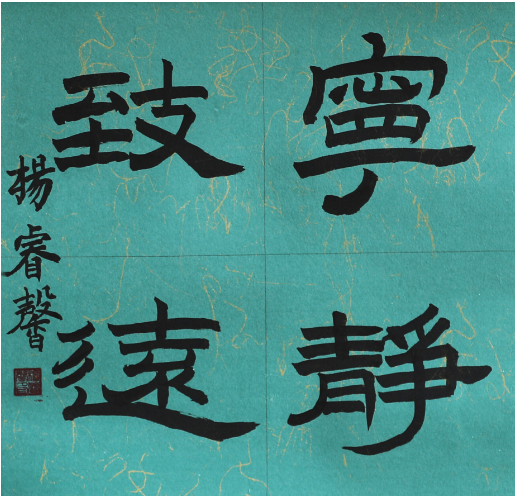 寧靜
致遠
楊睿馨